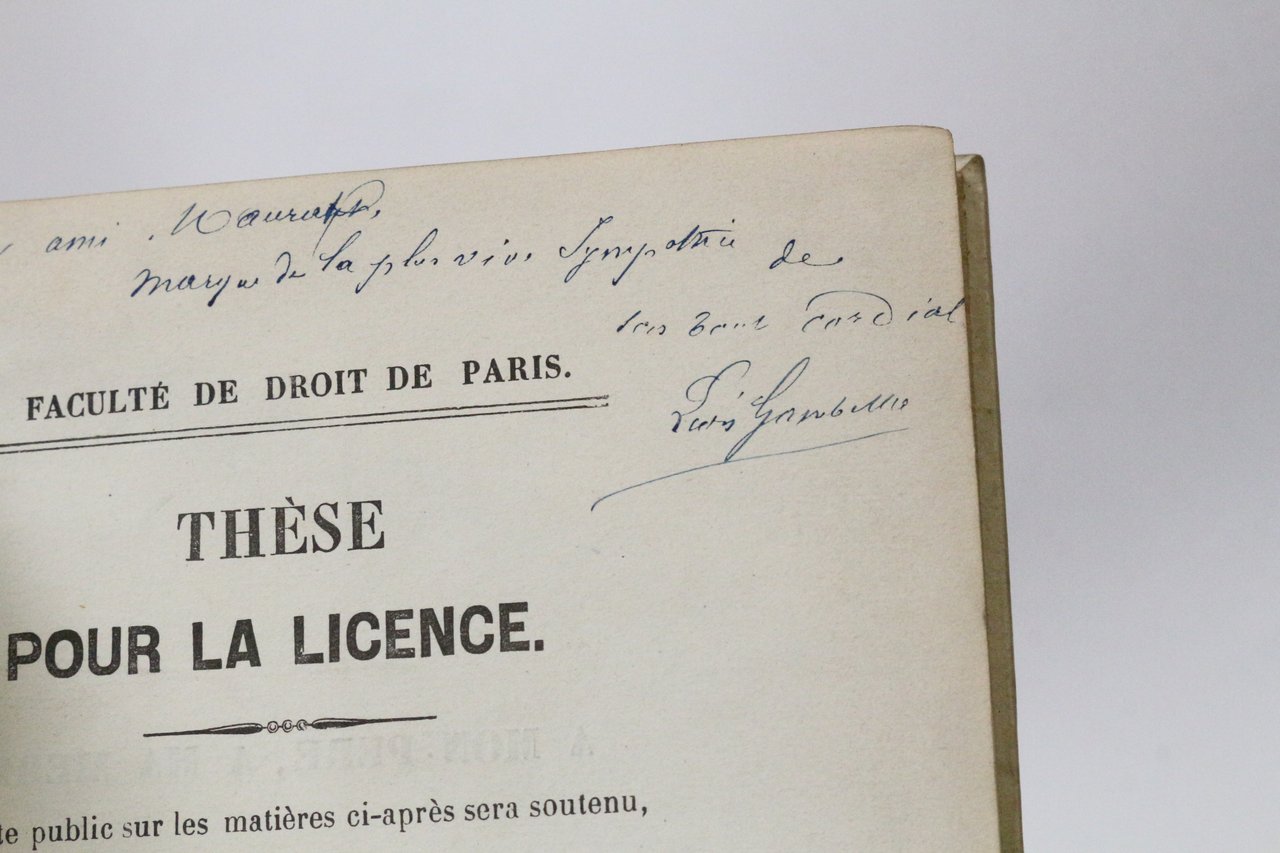 ami
marque de la plus vive Sympathie de
son tout cordial
Léon Gambetta
FACULTÉ DE DROIT DE PARIS.
THÈSE
POUR LA LICENCE.
te public sur les matières ci-après sera soutenu,